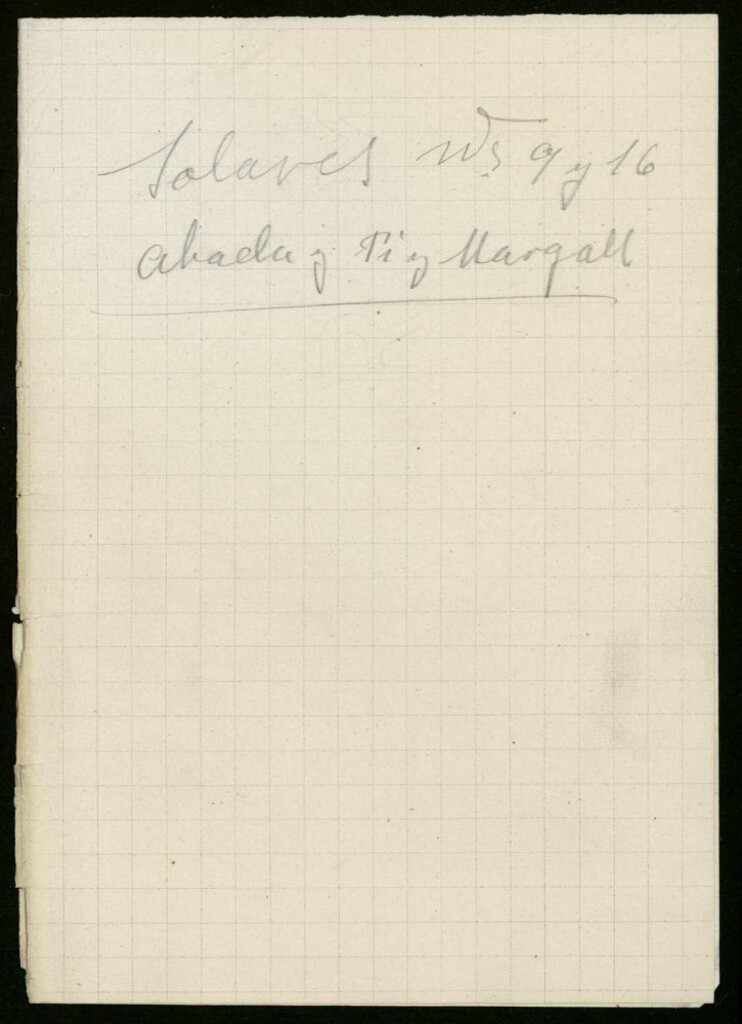 Solares Nos 9 y 16
Abada y Pi y Margall